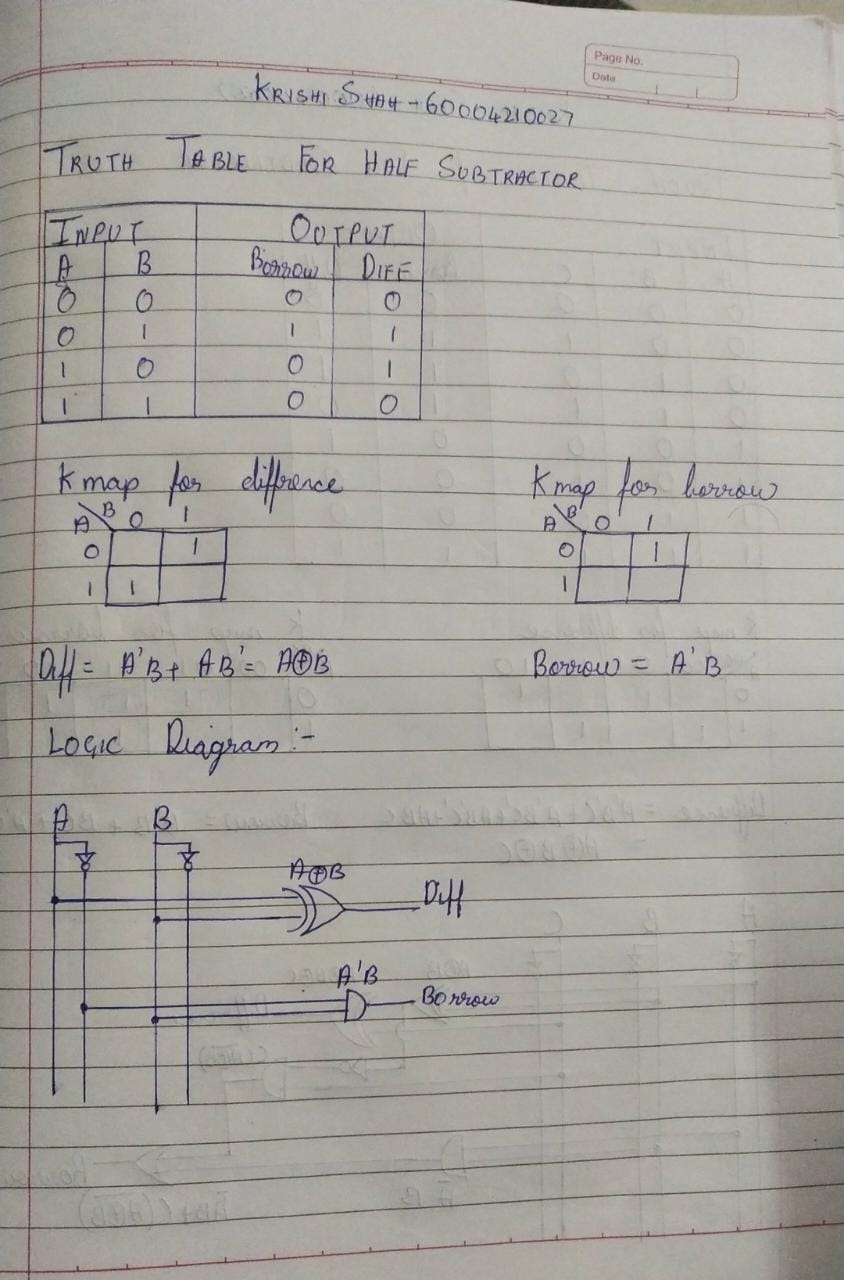 Page No.
Date
KRISHI SHAH - 60004210027
TRUTH TABLE FOR HALF SUBTRACTOR
INPUT OUTPUT
A B Borrow DIFF
0 0 0 0
0 1 1 1
1 0 0 1
1 1 0 0
K map for difference K map for borrow
A B 0 1 A B 0 1
0 1 0 1
1 1 1
Diff = A'B + AB' = A⊕B Borrow = A'B
LOGIC Diagram :-
A B
A⊕B
Diff
A'B
Borrow